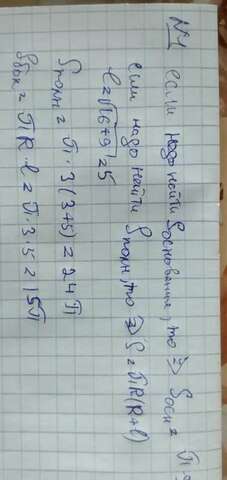 №1 если надо найти Sоснования, то => Sосн = π·9
если надо найти Sполн, то => S = πR(R+l)
l = √16+9 = 5
Sполн = π·3(3+5) = 24π
Sбок = πR·l = π·3·5 = 15π